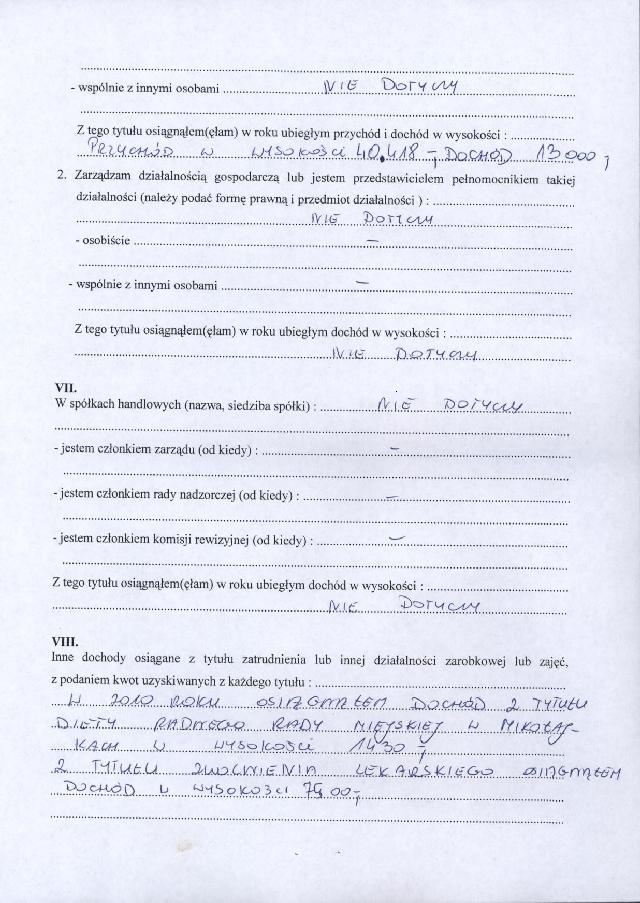 - wspólnie z innymi osobami NIE DOTYCZY
Z tego tytułu osiągnąłem(ęłam) w roku ubiegłym przychód i dochód w wysokości :
PRZYCHÓD W WYSOKOŚCI 40.418 -, DOCHÓD 13 000,
2. Zarządzam działalnością gospodarczą lub jestem przedstawicielem pełnomocnikiem takiej
działalności (należy podać formę prawną i przedmiot działalności ) :
NIE DOTYCZY
- osobiście –
- wspólnie z innymi osobami –
Z tego tytułu osiągnąłem(ęłam) w roku ubiegłym dochód w wysokości :
NIE DOTYCZY
VII.
W spółkach handlowych (nazwa, siedziba spółki) : NIE DOTYCZY
- jestem członkiem zarządu (od kiedy) : –
- jestem członkiem rady nadzorczej (od kiedy) : –
- jestem członkiem komisji rewizyjnej (od kiedy) : –
Z tego tytułu osiągnąłem(ęłam) w roku ubiegłym dochód w wysokości :
NIE DOTYCZY
VIII.
Inne dochody osiągane z tytułu zatrudnienia lub innej działalności zarobkowej lub zajęć,
z podaniem kwot uzyskiwanych z każdego tytułu :
W 2010 ROKU OSIĄGNĄŁEM DOCHÓD Z TYTUŁU
DIETY RADNEGO RADY MIEJSKIEJ W MIKOŁAJ-
KACH W WYSOKOŚCI 1430 -,
Z TYTUŁU ZWOLNIENIA LEKARSKIEGO OSIĄGNĄŁEM
DOCHÓD W WYSOKOŚCI 00-,